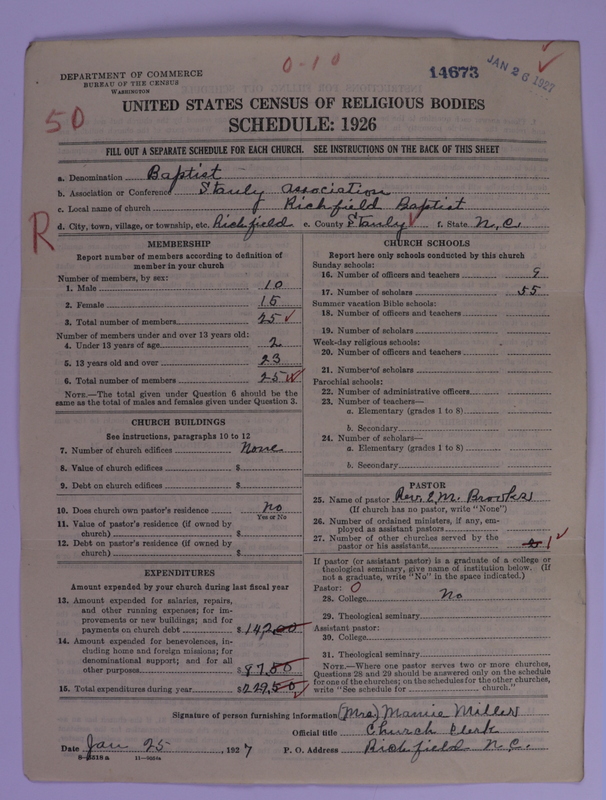 0-10
14673
JAN 26 1927
DEPARTMENT OF COMMERCE
BUREAU OF THE CENSUS
WASHINGTON
50
UNITED STATES CENSUS OF RELIGIOUS BODIES
SCHEDULE: 1926
FILL OUT A SEPARATE SCHEDULE FOR EACH CHURCH. SEE INSTRUCTIONS ON THE BACK OF THIS SHEET
a. Denomination Baptist
b. Association or Conference Stanly Association
c. Local name of church Richfield Baptist
d. City, town, village, or township, etc. Richfield e. County Stanly f. State N.C.
R
MEMBERSHIP
Report number of members according to definition of
member in your church
Number of members, by sex:
1. Male 10
2. Female 15
3. Total number of members 25
Number of members under and over 13 years old:
4. Under 13 years of age 2
5. 13 years old and over 23
6. Total number of members 25
NOTE.—The total given under Question 6 should be
same as the total of males and females given under Question 3.
CHURCH BUILDINGS
See instructions, paragraphs 10 to 12
7. Number of church edifices None
8. Value of church edifices $
9. Debt on church edifices $
10. Does church own pastor's residence No
Yes or No
11. Value of pastor's residence (if owned by
church) $
12. Debt on pastor's residence (if owned by
church) $
EXPENDITURES
Amount expended by your church during last fiscal year
13. Amount expended for salaries, repairs,
and other running expenses; for im-
provements or new buildings; and for
payments on church debt $142.00
14. Amount expended for benevolences, in-
cluding home and foreign missions; for
denominational support; and for all
other purposes $87.50
15. Total expenditures during year $229.50
CHURCH SCHOOLS
Report here only schools conducted by this church
Sunday schools:
16. Number of officers and teachers 9
17. Number of scholars 55
Summer vacation Bible schools:
18. Number of officers and teachers
19. Number of scholars
Week-day religious schools:
20. Number of officers and teachers
21. Number of scholars
Parochial schools:
22. Number of administrative officers
23. Number of teachers—
a. Elementary (grades 1 to 8)
b. Secondary
24. Number of scholars—
a. Elementary (grades 1 to 8)
b. Secondary
PASTOR
25. Name of pastor Rev. M. Brooks
(If church has no pastor, write "None")
26. Number of ordained ministers, if any, em-
ployed as assistant pastors
27. Number of other churches served by the
pastor or his assistants 1
If pastor (or assistant pastor) is a graduate of a college or
theological seminary, give name of institution below. (If
not a graduate, write "No" in the space indicated.)
Pastor: 0
28. College No
29. Theological seminary
Assistant pastor:
30. College
31. Theological seminary
NOTE.—Where one pastor serves two or more churches,
Questions 28 and 29 should be answered only on the schedule
for one of the churches; on the schedules for the other churches,
write "See schedule for church."
Signature of person furnishing information (Mrs) Mamie Miller
Official title Church Clerk
Date Jan 25, 1927 P. O. Address Richfield N.C.
11—9024a